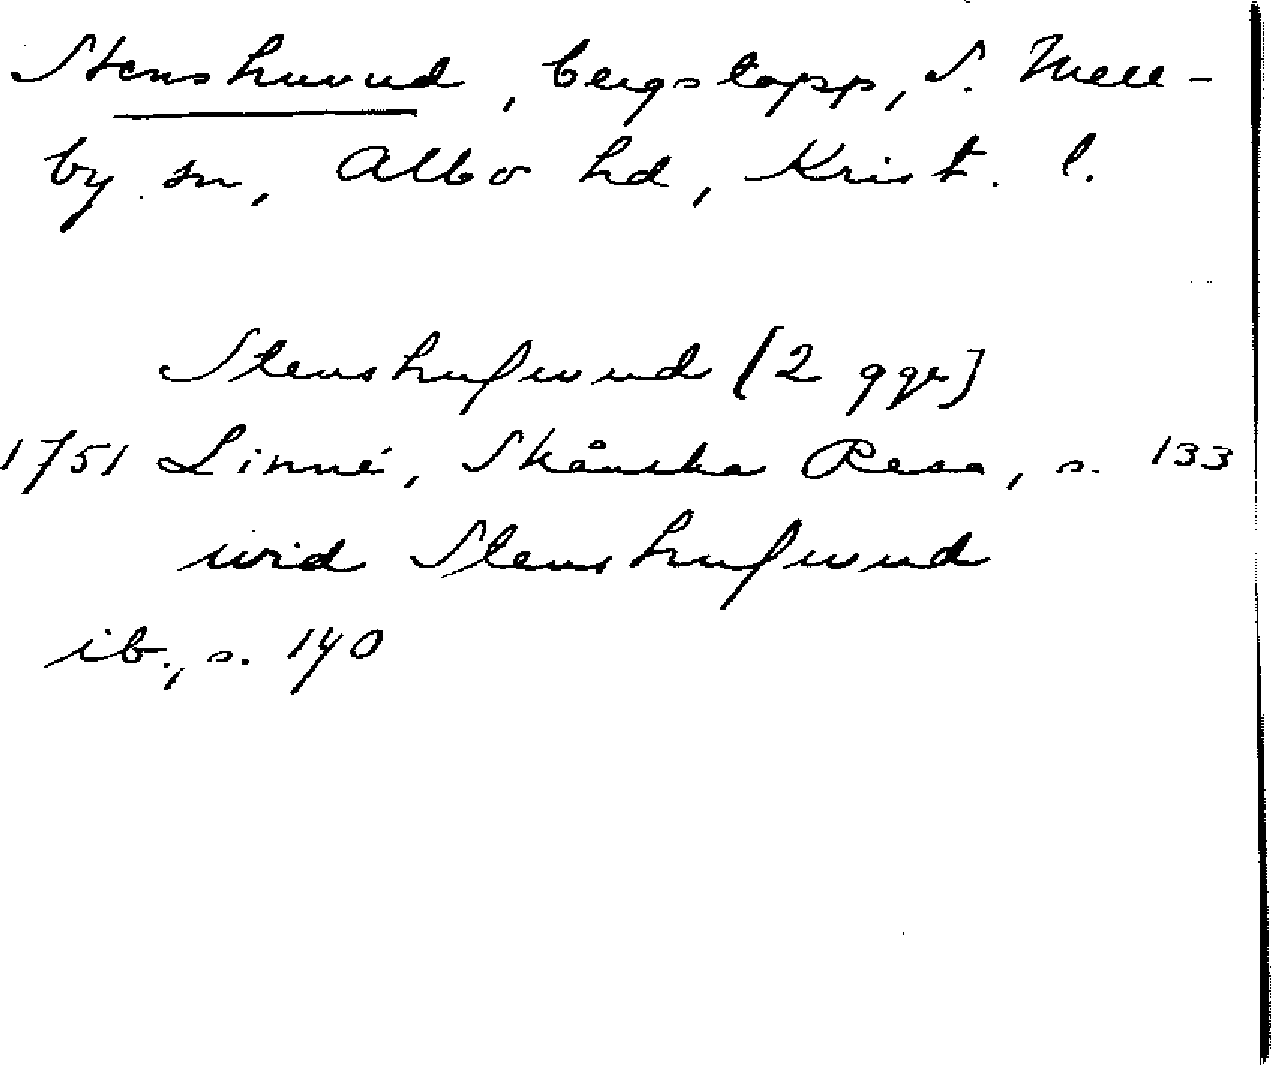 Stenshuvud, bergstopp, S. Mell-
by sn, Albo hd, Krist. l.
Stenshufwud [2 ggr]
1751 Linné, Skånska Resa, s. 133
wid Stenshufwud
ib., s. 140